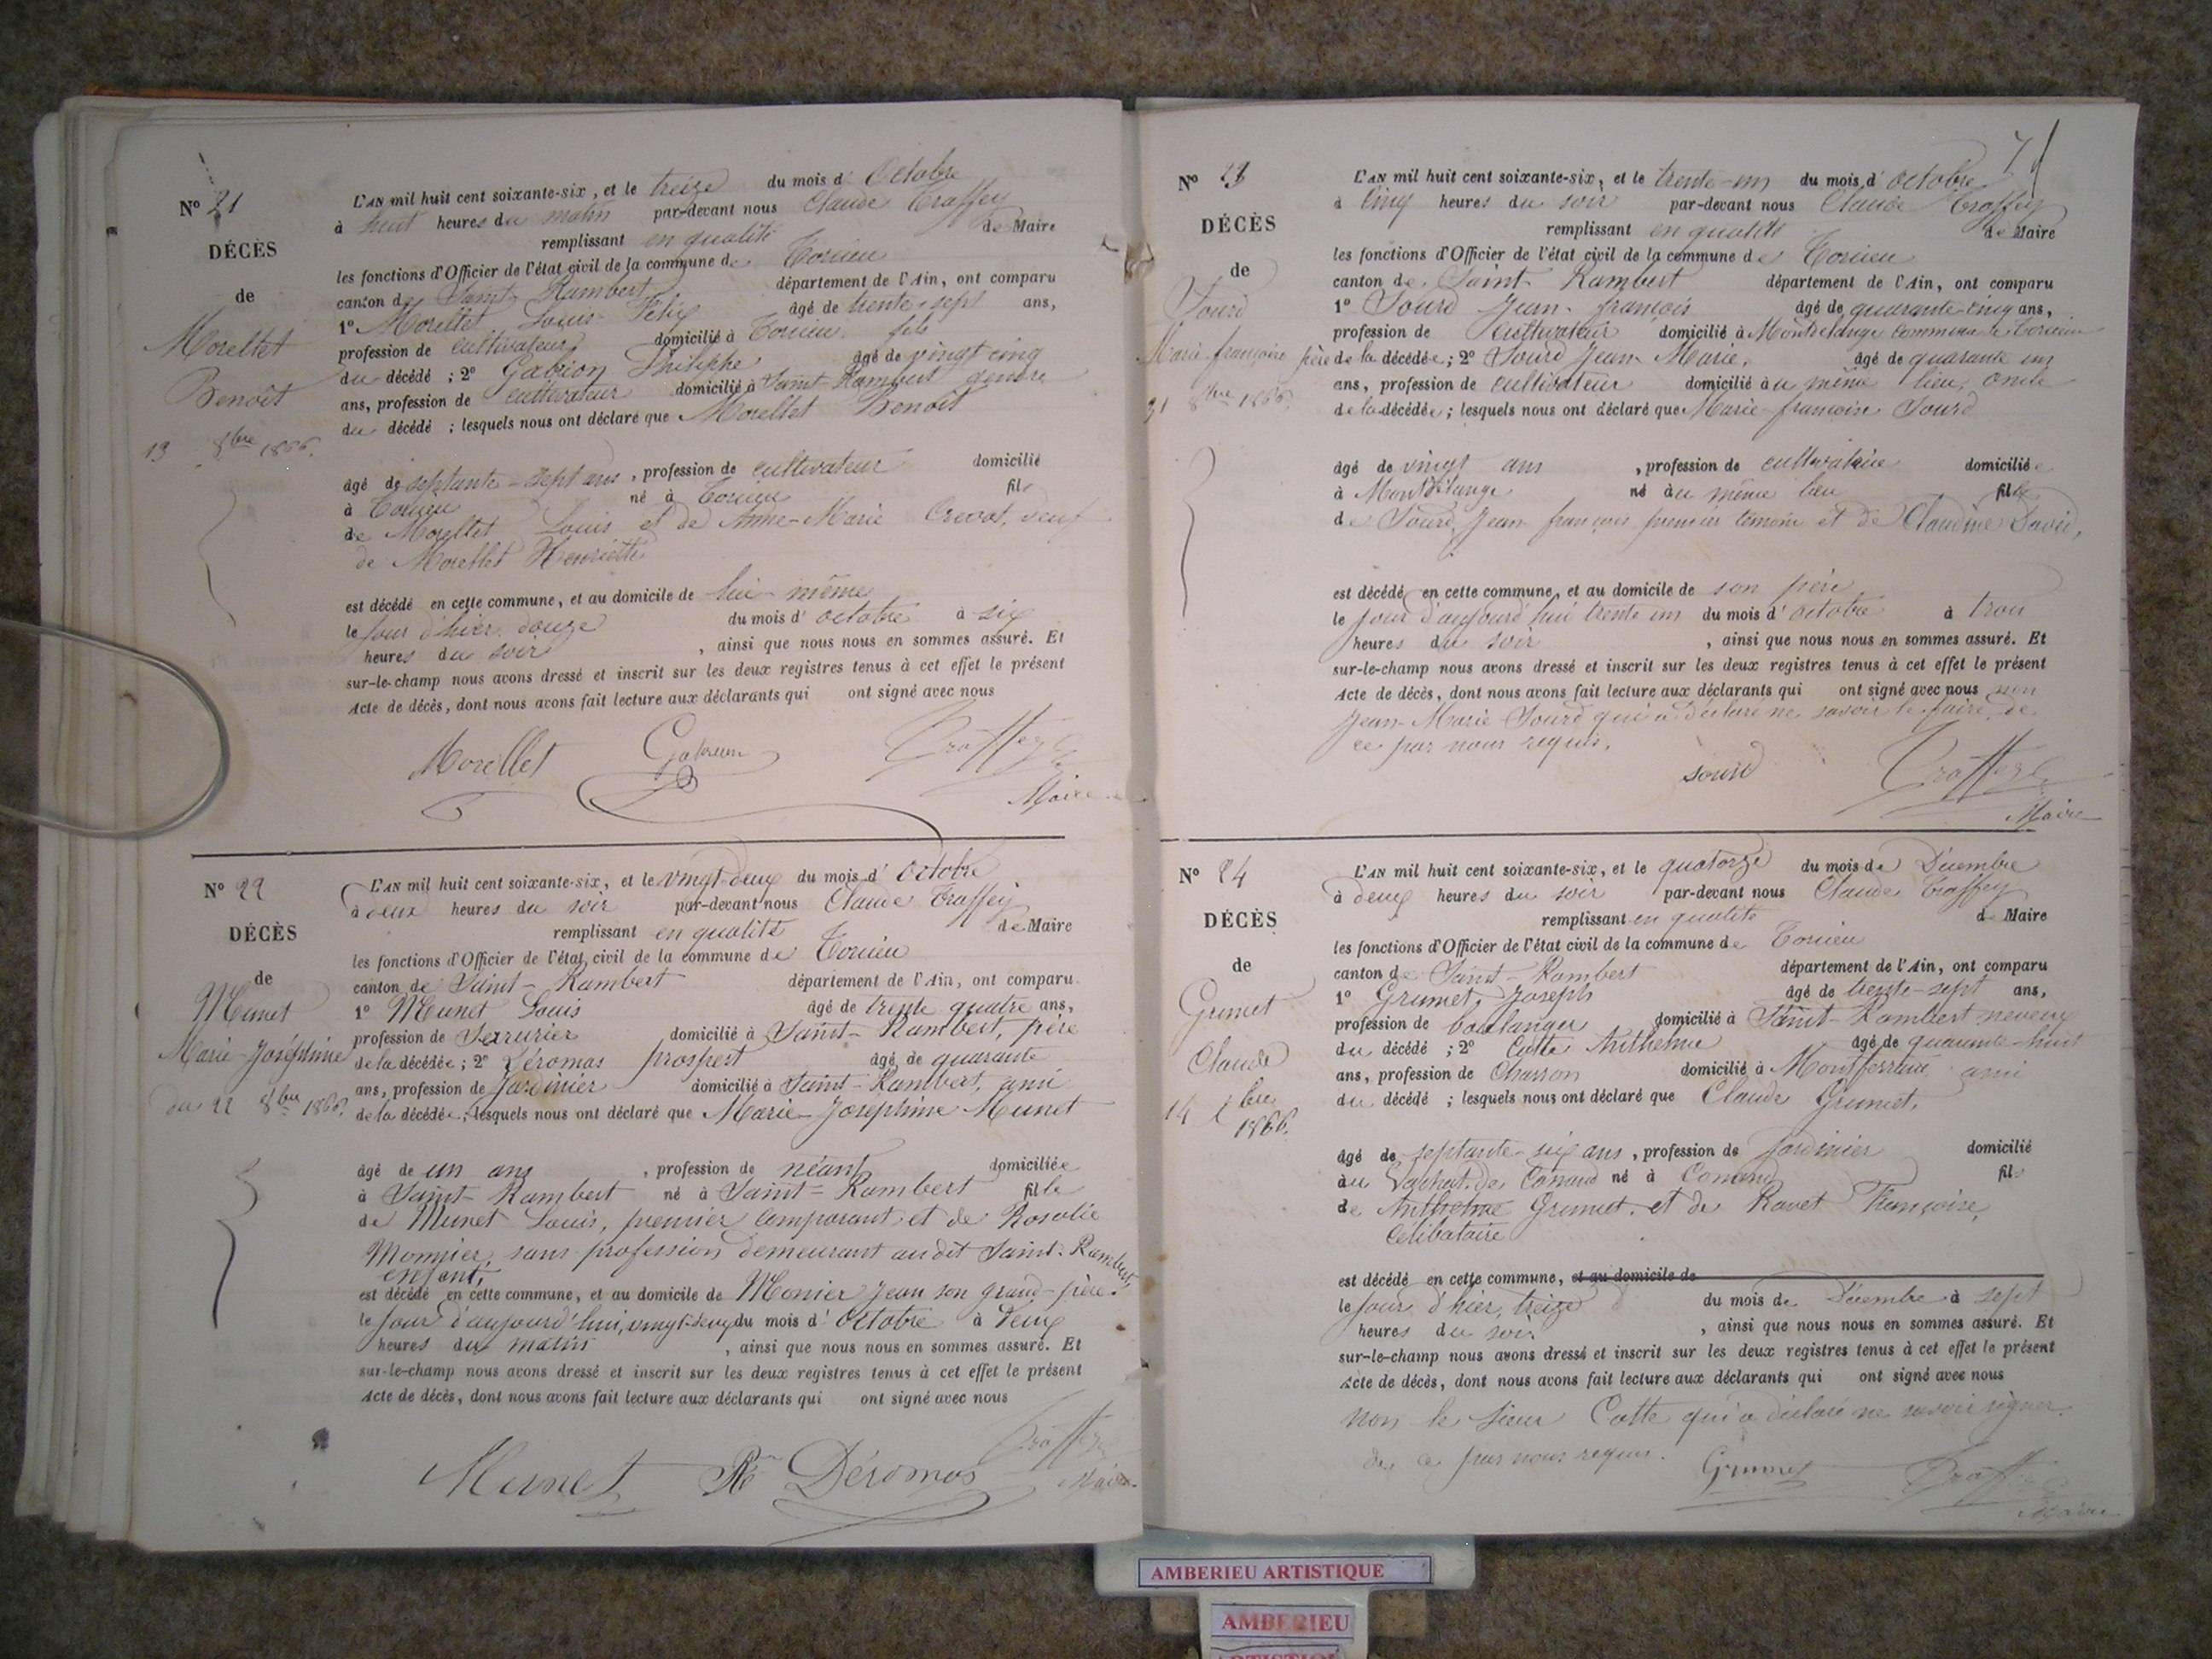 N° 21
DÉCÈS
de
Morellet
Benoit
13 8bre 1866.
L'AN mil huit cent soixante-six, et le treize du mois d' Octobre
à huit heures du matin par-devant nous Claude Traffey
remplissant en qualité de Maire
les fonctions d'Officier de l'état civil de la commune de Torcieu
canton de Saint-Rambert département de l'Ain, ont comparu
1° Morellet Louis Felix âgé de trente-sept ans,
profession de cultivateur domicilié à Torcieu fils
du décédé ; 2° Gabrion Philippe âgé de vingt cinq
ans, profession de cultivateur domicilié à Saint-Rambert gendre
du décédé ; lesquels nous ont déclaré que Morellet Benoit
âgé de septante-sept ans, profession de cultivateur domicilié
à Torcieu né à Torcieu fils
de Morellet Louis et de Anne-Marie Crevat, veuf
de Morellet Henriette
est décédé en cette commune, et au domicile de lui-même
le jour d'hier douze du mois d' octobre à six
heures du soir, ainsi que nous nous en sommes assuré. Et
sur-le-champ nous avons dressé et inscrit sur les deux registres tenus à cet effet le présent
Acte de décès, dont nous avons fait lecture aux déclarants qui ont signé avec nous
Morellet Gabrion Traffey
Maire
N° 22
DÉCÈS
de
Munet
Marie-Joséphine
du 22 8bre 1866.
L'AN mil huit cent soixante-six, et le vingt-deux du mois d' Octobre
à deux heures du soir par-devant nous Claude Traffey
remplissant en qualité de Maire
les fonctions d'Officier de l'état civil de la commune de Torcieu
canton de Saint-Rambert département de l'Ain, ont comparu
1° Munet Louis âgé de trente quatre ans,
profession de Serrurier domicilié à Saint-Rambert, père
de la décédée ; 2° Déromas prospert âgé de quarante
ans, profession de Jardinier domicilié à Saint-Rambert, ami
de la décédée ; lesquels nous ont déclaré que Marie-Joséphine Munet
âgé de un ans, profession de néant domiciliée
à Saint-Rambert né à Saint-Rambert fille
de Munet Louis, premier comparant et de Rosalie
Monnier, sans profession demeurant au dit Saint-Rambert,
enfant,
est décédé en cette commune, et au domicile de Monier Jean son grand-père.
le jour d'aujourd'hui, vingt-deux du mois d' Octobre à Deux
heures du matin, ainsi que nous nous en sommes assuré. Et
sur-le-champ nous avons dressé et inscrit sur les deux registres tenus à cet effet le présent
Acte de décès, dont nous avons fait lecture aux déclarants qui ont signé avec nous
Munet Déromas Traffey
Maire
N° 23
DÉCÈS
de
Sourd
Marie-françoise
31 8bre 1866.
L'AN mil huit cent soixante-six, et le trente-un du mois d' octobre
à Cinq heures du soir par-devant nous Claude Traffey
remplissant en qualité de Maire
les fonctions d'Officier de l'état civil de la commune de Torcieu
canton de Saint-Rambert département de l'Ain, ont comparu
1° Sourd Jean-françois âgé de quarante cinq ans,
profession de Cultivateur domicilié à Montdelange commune de Torcieu
père de la décédée ; 2° Sourd Jean-Marie, âgé de quarante un
ans, profession de cultivateur domicilié au même lieu, oncle
de la décédée ; lesquels nous ont déclaré que Marie-françoise Sourd
âgé de vingt ans, profession de cultivatrice domiciliée
à Montdelange né au même lieu fille
de Sourd Jean françois premier témoin et de Claudine David,
est décédé en cette commune, et au domicile de son père
le jour d'aujourd'hui trente un du mois d' octobre à trois
heures du soir, ainsi que nous nous en sommes assuré. Et
sur-le-champ nous avons dressé et inscrit sur les deux registres tenus à cet effet le présent
Acte de décès, dont nous avons fait lecture aux déclarants qui ont signé avec nous non
Jean-Marie Sourd qui a déclaré ne savoir le faire, de
ce par nous requis.
sourd Traffey
Maire
N° 24
DÉCÈS
de
Grumet
Claude
14 Xbre
1866.
L'AN mil huit cent soixante-six, et le quatorze du mois de Décembre
à deux heures du soir par-devant nous Claude Traffey
remplissant en qualité de Maire
les fonctions d'Officier de l'état civil de la commune de Torcieu
canton de Saint-Rambert département de l'Ain, ont comparu
1° Grumet, Joseph âgé de trente-sept ans,
profession de boulanger domicilié à Saint-Rambert neveux
du décédé ; 2° Cotte Anthelme âgé de quarante-huit
ans, profession de Charron domicilié à Montferrand ami
du décédé ; lesquels nous ont déclaré que Claude Grumet,
âgé de septante-six ans, profession de Jardinier domicilié
au de Conand né à Conand fils
de Anthelme Grumet et de Ravet Françoise,
célibataire
est décédé en cette commune, et au domicile de
le jour d'hier, treize du mois de Décembre à sept
heures du soir, ainsi que nous nous en sommes assuré. Et
sur-le-champ nous avons dressé et inscrit sur les deux registres tenus à cet effet le présent
Acte de décès, dont nous avons fait lecture aux déclarants qui ont signé avec nous
non le sieur Cotte qui a déclaré ne savoir signer.
de ce par nous requis. Grumet Traffey
Maire
AMBERIEU ARTISTIQUE
AMBERIEU
ARTISTIQUE